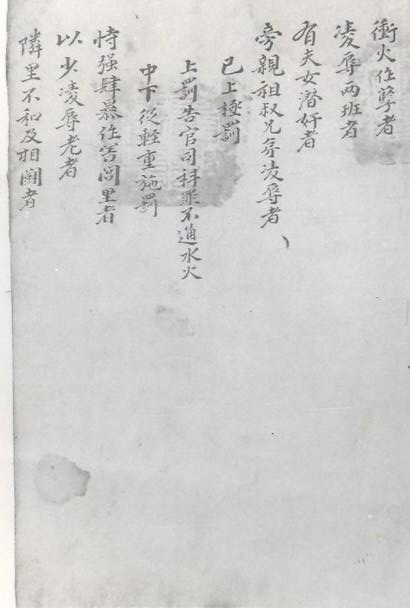 衝火作孽者
凌辱两班者
有夫女潛奸者
旁親祖叔兄弟凌辱者
已上極罰
上罰告官司科罪不通水火
中下從輕重施罰
恃强肆暴作害閭里者
以少凌辱老者
隣里不和及相鬪者